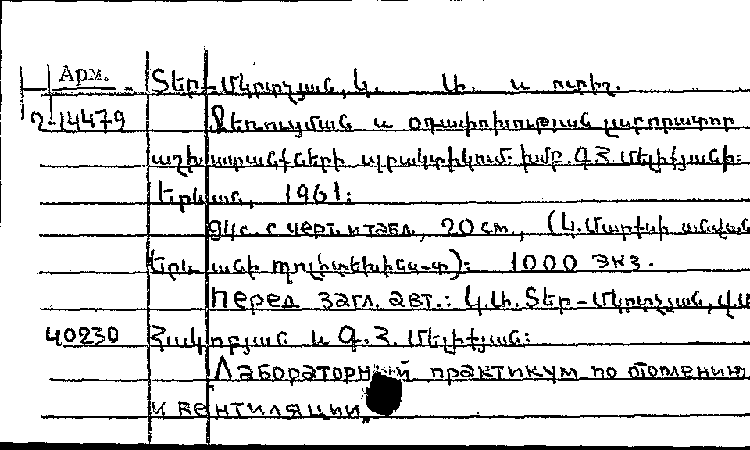 Арм. Տեր-Մկրտչյան, Կ. Ա. և ուրիշ.
2-14479 Ջեռուցման և օդափոխության լաբորատոր
աշխատանքների պրակտիկում: խմբ. Գ.Հ. Մելիքյանի:
Երևան, 1961:
94с. с черт. и табл., 20 см, (Կ. Մարքսի անվան
Երևանի պոլիտեխինս-տ): 1000 экз.
Перед загл. авт.: Կ.Ա. Տեր-Մկրտչյան,
40230 Հակոբյան և Գ.Հ. Մելիքյան:
Лабораторный практикум по отоплению
и вентиляции.